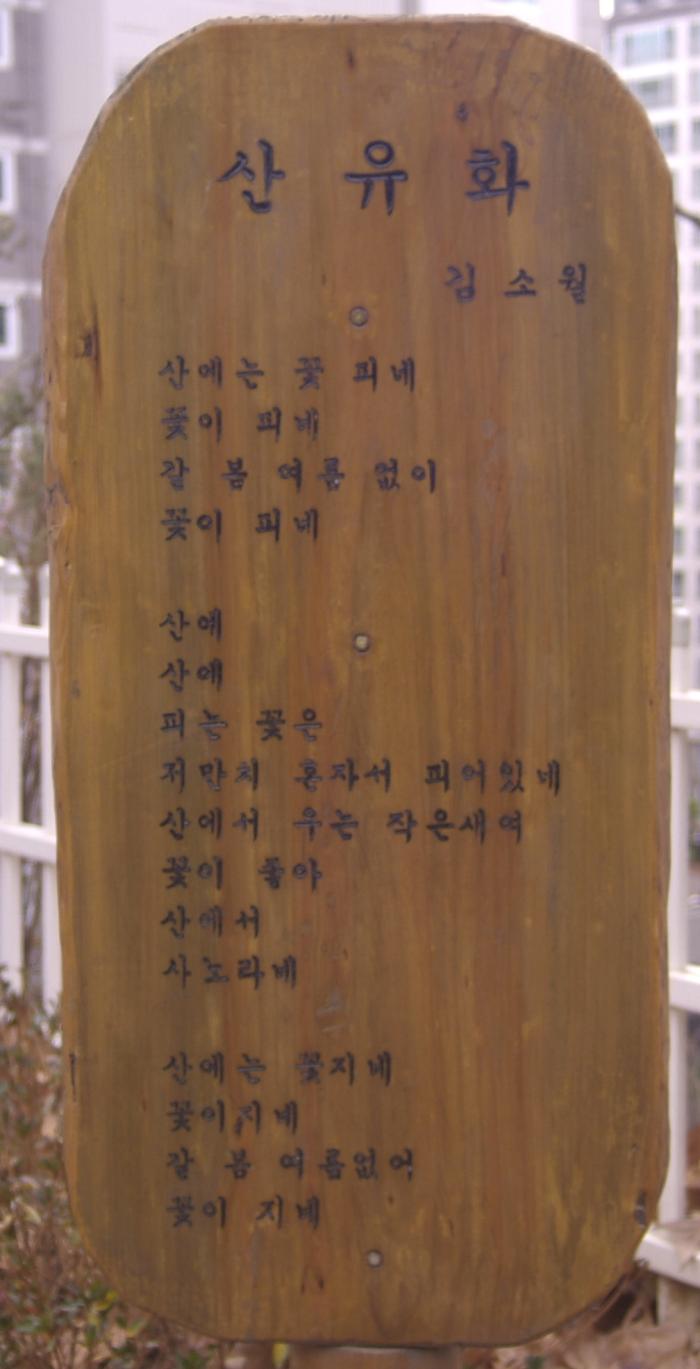 산 유 화
김 소 월
산에는 꽃 피네
꽃이 피네
갈 봄 여름 없이
꽃이 피네
산에
산에
피는 꽃은
저만치 혼자서 피어있네
산에서 우는 작은새여
꽃이 좋아
산에서
사노라네
산에는 꽃지네
꽃이지네
갈 봄 여름없어
꽃이 지네